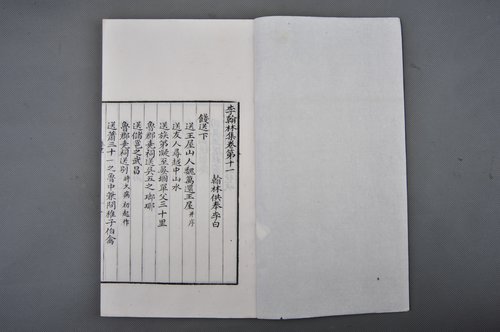 李翰林集卷第十一
翰林供奉李白
餞送下
送王屋山人魏萬還王屋并序
送友人尋越中山水
送族弟凝至晏堌單父三十里
魯郡堯祠送吳五之琅琊
送儲邕之武昌
魯郡堯祠送別時久病初起作
送蕭三十一之魯中兼問稚子伯禽